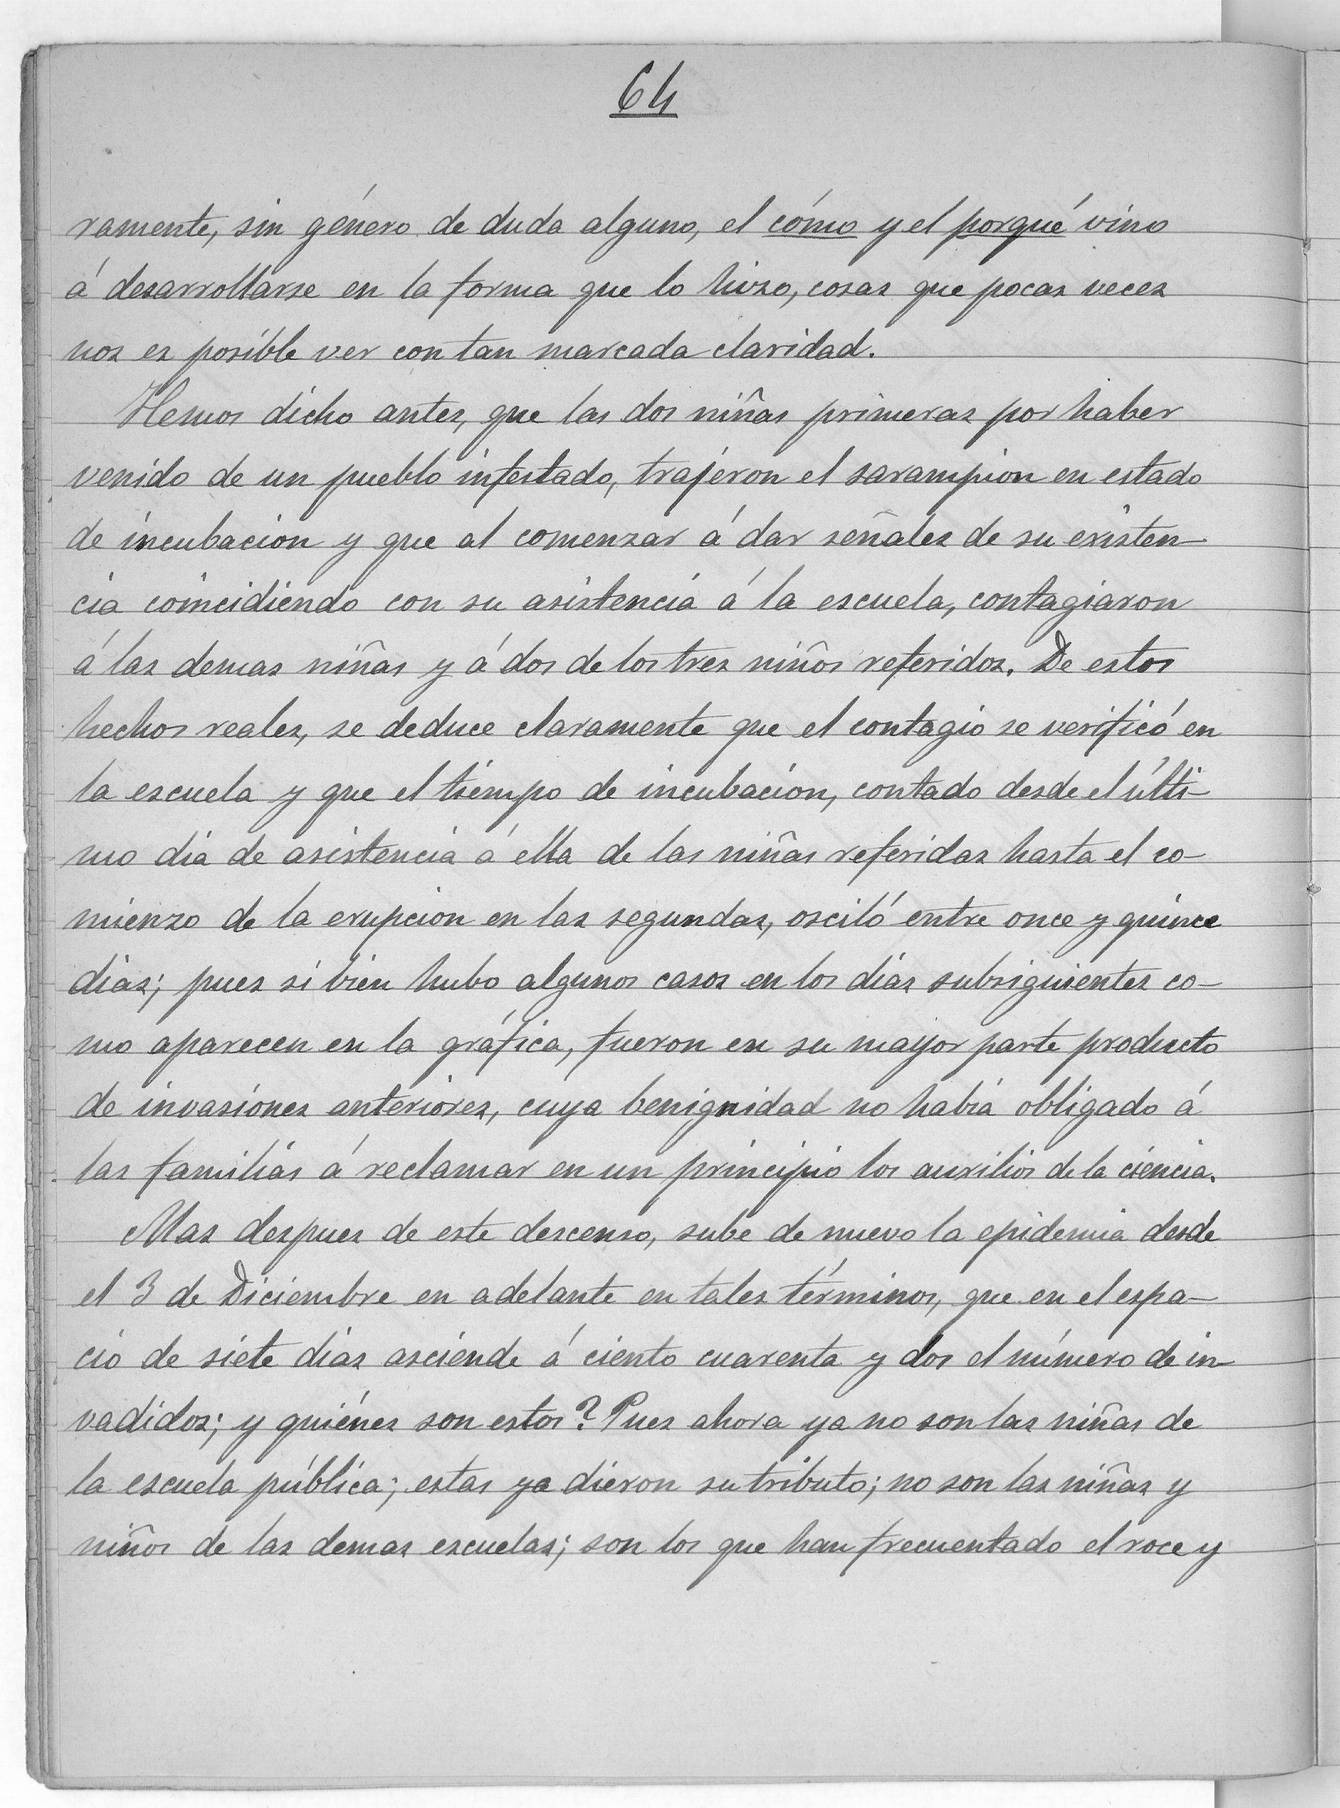 64
ramente, sin género de duda alguno, el cómo y el porqué vino
á desarrollarse en la forma que lo hizo, cosas que pocas veces
nos es posible ver con tan marcada claridad.
Hemos dicho antes, que las dos niñas primeras por haber
venido de un pueblo infestado, trajeron el sarampion en estado
de incubacion y que al comenzar á dar señales de su existen-
cia coincidiendo con su asistencia á la escuela, contagiaron
á las demas niñas y á dos de los tres niños referidos. De estos
hechos reales, se deduce claramente que el contagio se verificó en
la escuela y que el tiempo de incubacion, contado desde el últi-
mo dia de asistencia á ella de las niñas referidas hasta el co-
mienzo de la erupcion en las segundas, osciló entre once y quince
dias; pues si bien hubo algunos casos en los dias subsiguientes co-
mo aparecen en la gráfica, fueron en su mayor parte producto
de invasiones anteriores, cuya benignidad no habia obligado á
las familias á reclamar en un principio los auxilios de la ciencia.
Mas despues de este descenso, sube de nuevo la epidemia desde
el 3 de Diciembre en adelante en tales términos, que en el espa-
cio de siete dias asciende á ciento cuarenta y dos el número de in-
vadidos; y quiénes son estos? Pues ahora ya no son las niñas de
la escuela pública; estas ya dieron su tributo; no son las niñas y
niños de las demas escuelas; son los que han frecuentado el roce y